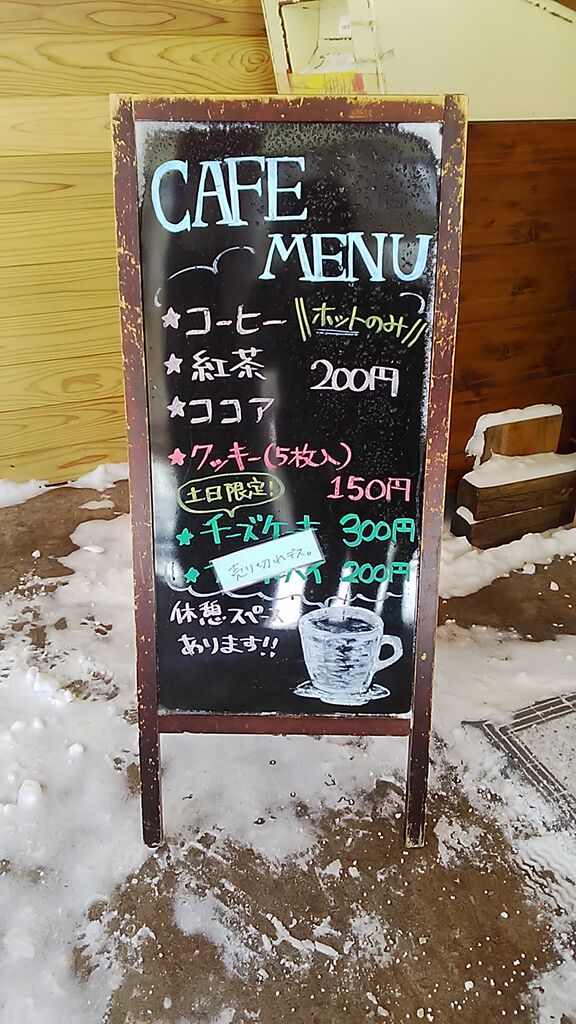 CAFE
MENU
★コーヒー \\ホットのみ//
★紅茶 200円
★ココア
★クッキー(5枚入)
150円
土日限定!
★チーズケーキ 300円
売り切れデス。
パイ 200円
休憩スペース
あります!!